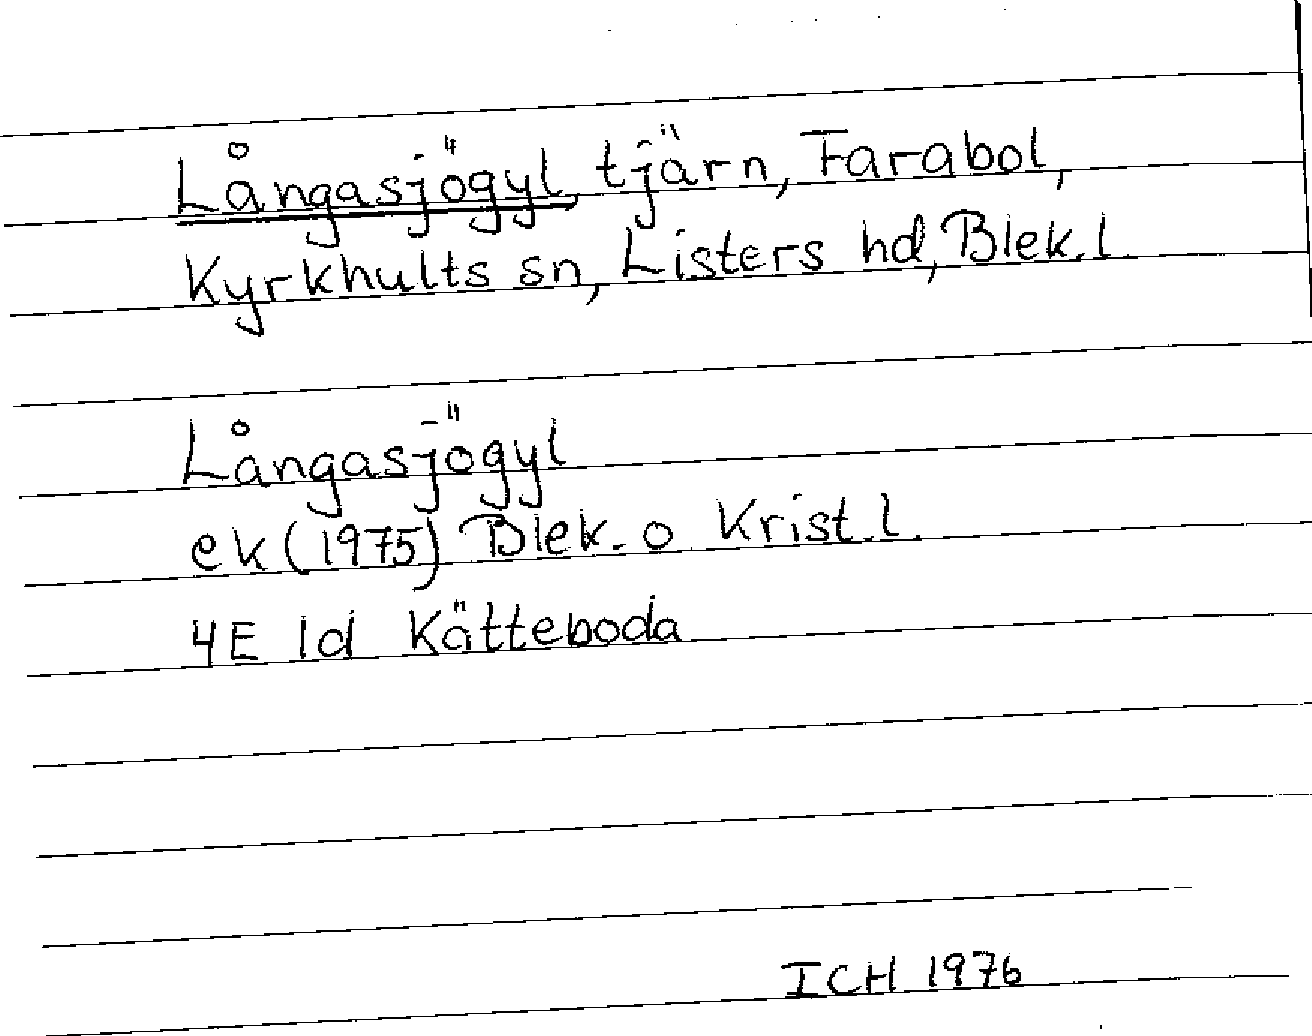 Långasjögyl, tjärn, Farabol,
Kyrkhults sn, Listers hd, Blek. l.
Långasjögyl
ek (1975) Blek. o Krist. l.
4E 1d Kätteboda
ICH 1976